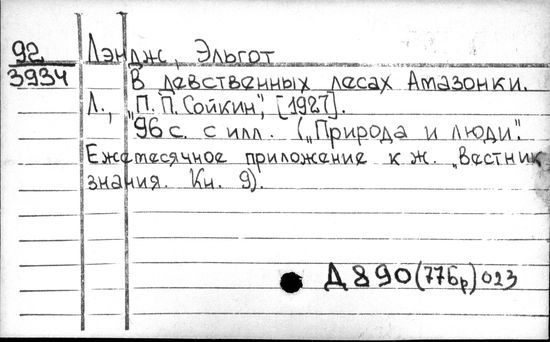 92 Лэндж, Эльгот
3934 В девственных лесах Амазонки.
Л., „П. П. Сойкин", [1927].
96 с. с илл. („Природа и люди".
Ежемесячное приложение к ж. „Вестник
знания. Кн. 9).
Д 890(77Бр)023